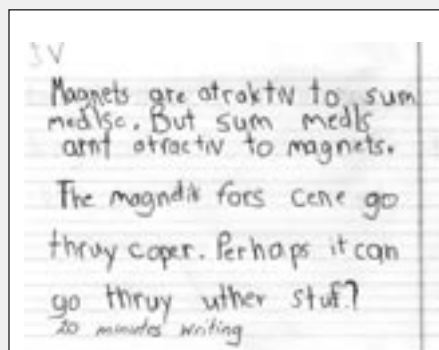 JV
Magnets are atraktiv to sum
medlse. But sum medls
arnt atractiv to magnets.
The magndik fors cene go
thruy coper. Perhaps it can
go thruy uther stuf?
20 minutes' writing